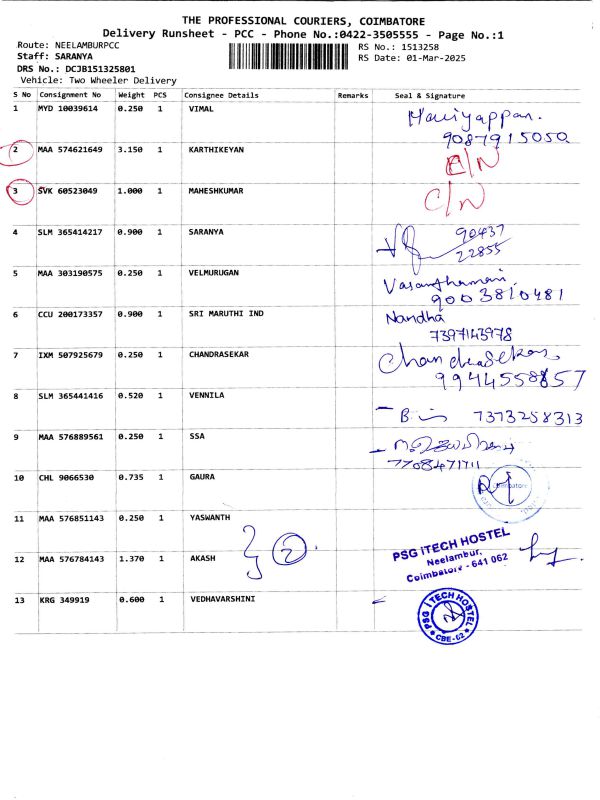 THE PROFESSIONAL COURIERS, COIMBATORE
Delivery Runsheet - PCC - Phone No.:0422-3505555 - Page No.:1
Route: NEELAMBURPCC RS No.: 1513258
Staff: SARANYA RS Date: 01-Mar-2025
DRS No.: DCJB151325801
Vehicle: Two Wheeler Delivery
S No Consignment No Weight PCS Consignee Details Remarks Seal & Signature
1 MYD 10039614 0.250 1 VIMAL Mariyappan.
9087915050
2 MAA 574621649 3.150 1 KARTHIKEYAN
3 SVK 60523049 1.000 1 MAHESHKUMAR C/N
4 SLM 365414217 0.900 1 SARANYA 90437
22855
5 MAA 303190575 0.250 1 VELMURUGAN Vasanthamani
9003810481
6 CCU 200173357 0.900 1 SRI MARUTHI IND Nandha
7397143978
7 IXM 507925679 0.250 1 CHANDRASEKAR Chandrasekar
9944558857
8 SLM 365441416 0.520 1 VENNILA 7373258313
9 MAA 576889561 0.250 1 SSA
7708471711
10 CHL 9066530 0.735 1 GAURA
11 MAA 576851143 0.250 1 YASWANTH
12 MAA 576784143 1.370 1 AKASH 2
PSG iTECH HOSTEL
Neelambur,
Coimbatore - 641 062
13 KRG 349919 0.600 1 VEDHAVARSHINI
PSG iTECH HOSTEL
CBE-62